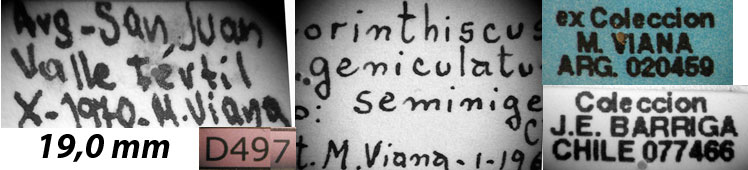 Arg-San Juan
Valle Fértil
X-1970-M.Viana
19,0 mm
D497
orinthiscus
.geniculatu
o: seminige
t. M. Viana-1-196
ex Coleccion
M. VIANA
ARG. 020459
Coleccion
J.E. BARRIGA
CHILE 077466